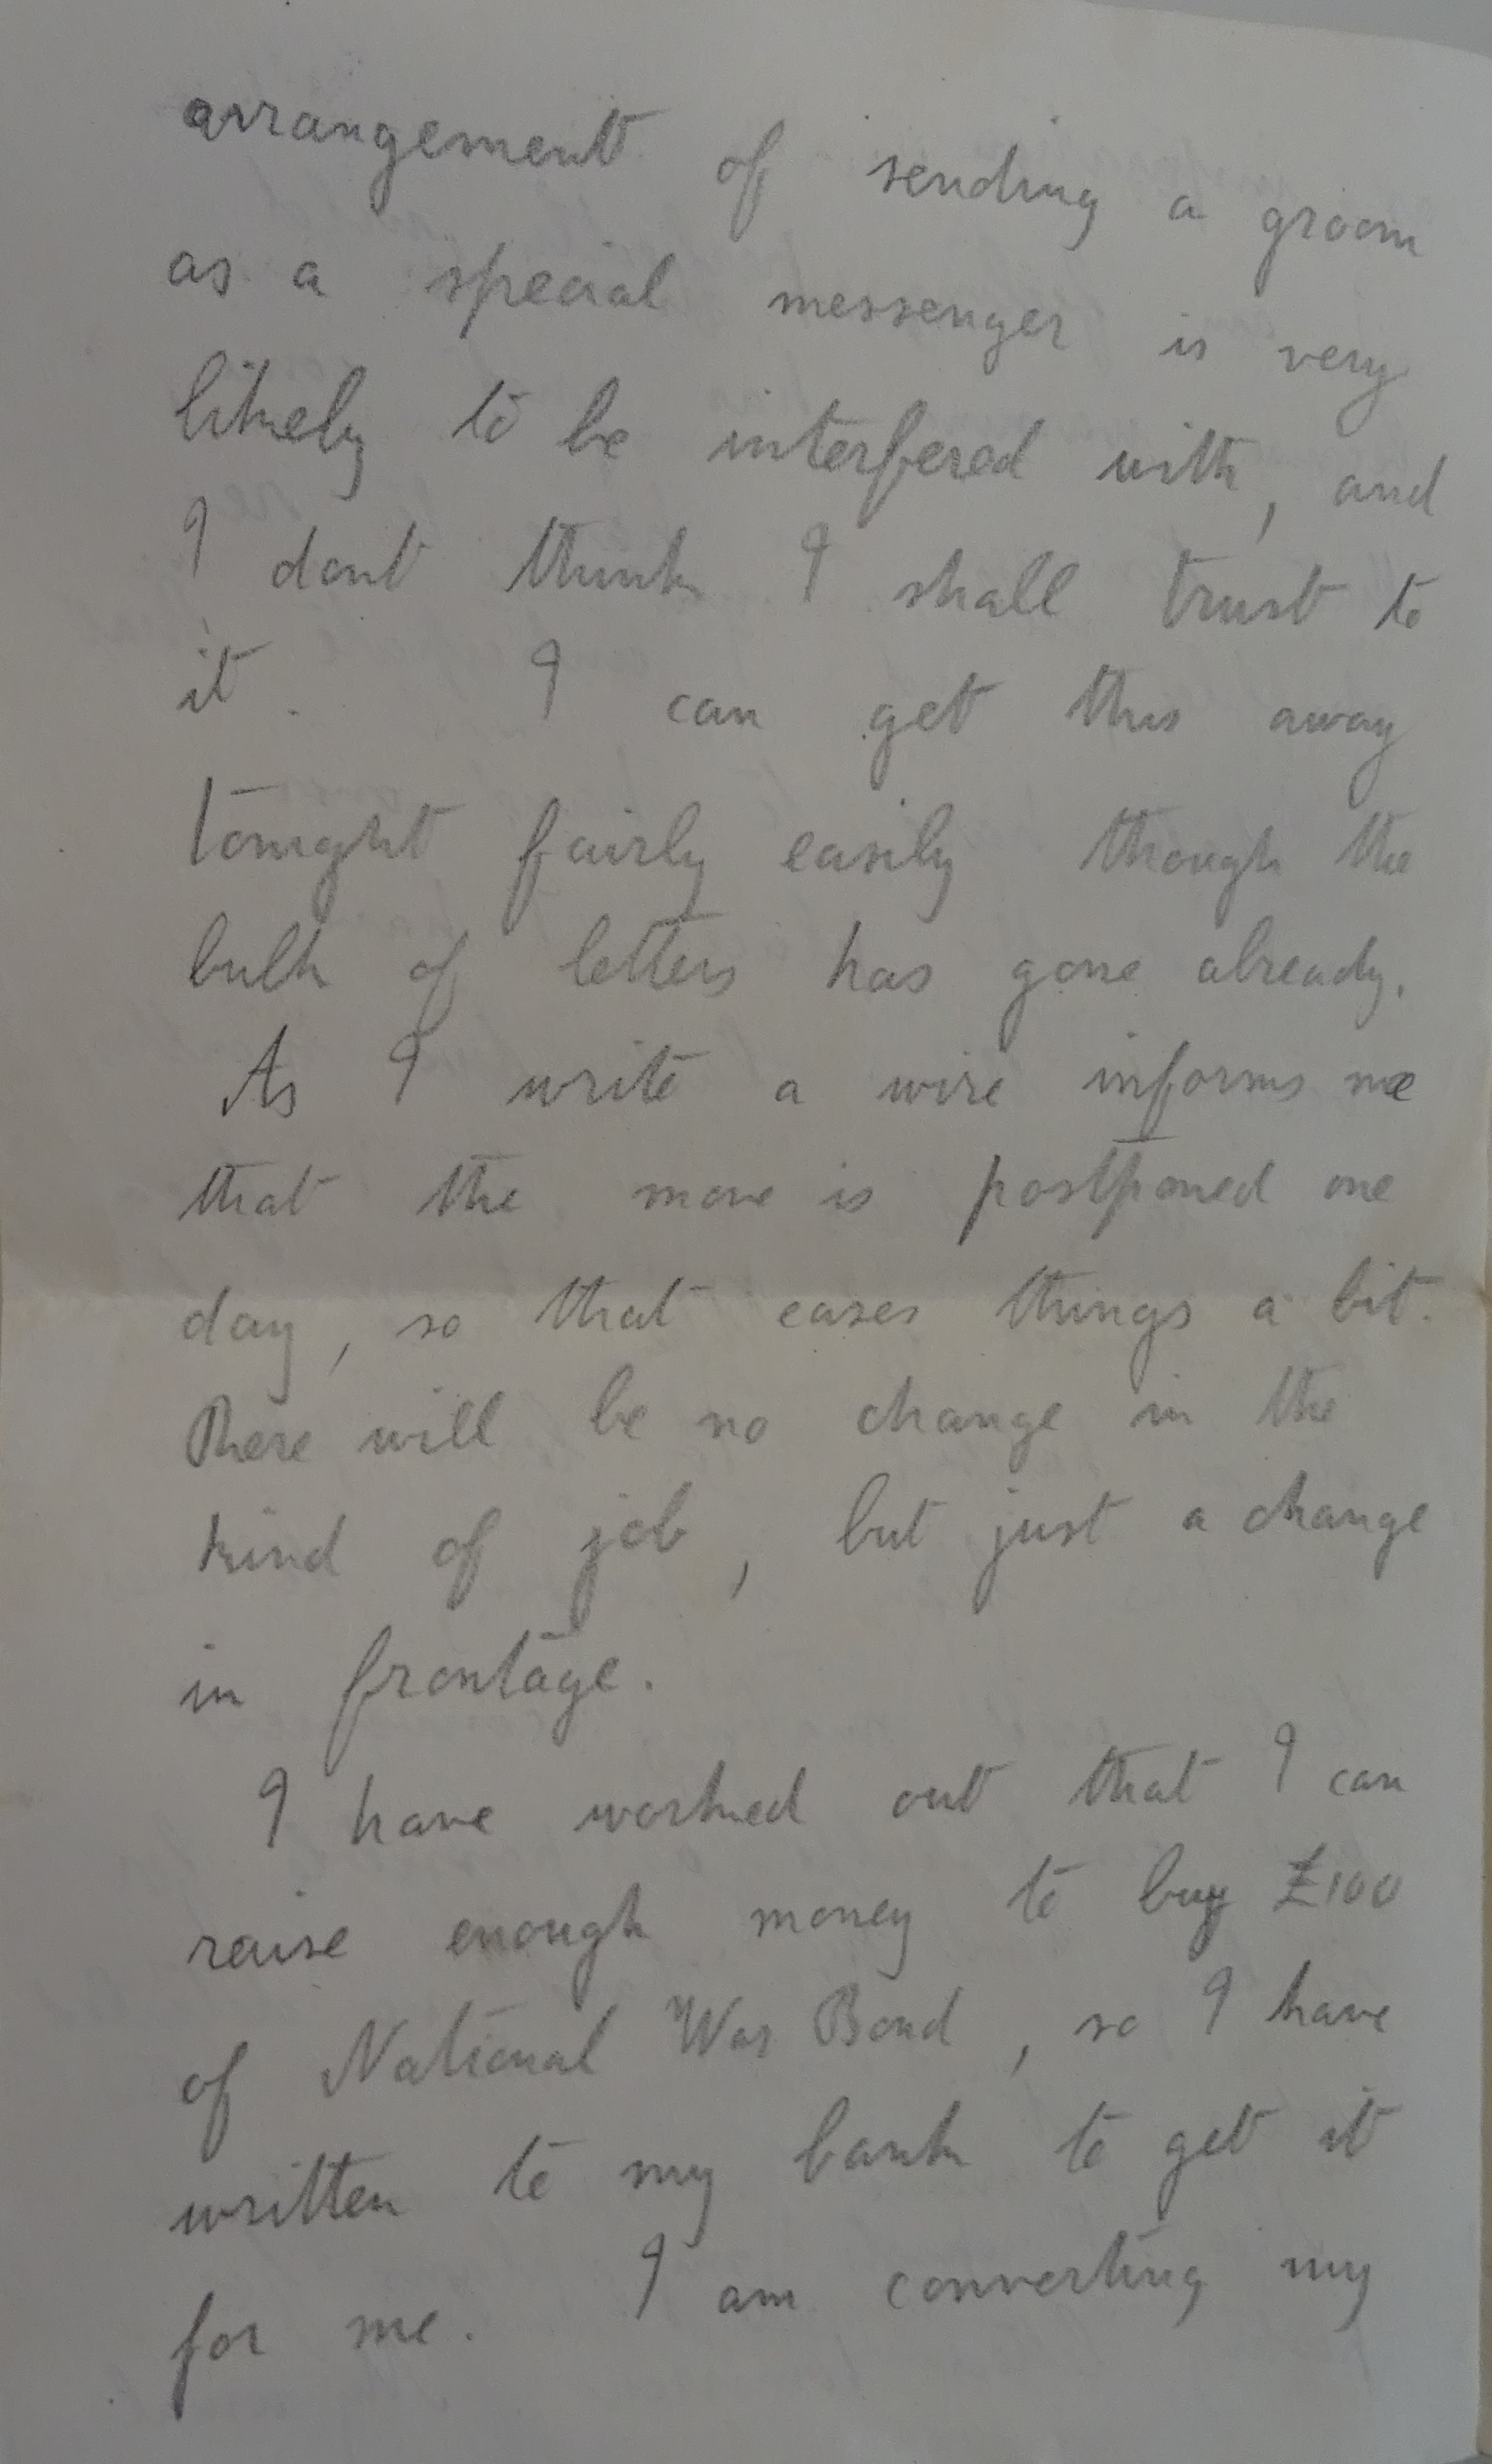 arrangement of sending a groom
as a special messenger is very
likely to be interfered with, and
I dont think I shall trust to
it. I can get this away
tonight fairly easily though the
bulk of letters has gone already.
As I write a wire informs me
that the move is postponed one
day, so that eases things a bit.
There will be no change in the
kind of job, but just a change
in frontage.
I have worked out that I can
raise enough money to buy £100
of National War Bond, so I have
written to my bank to get it
for me. I am converting my